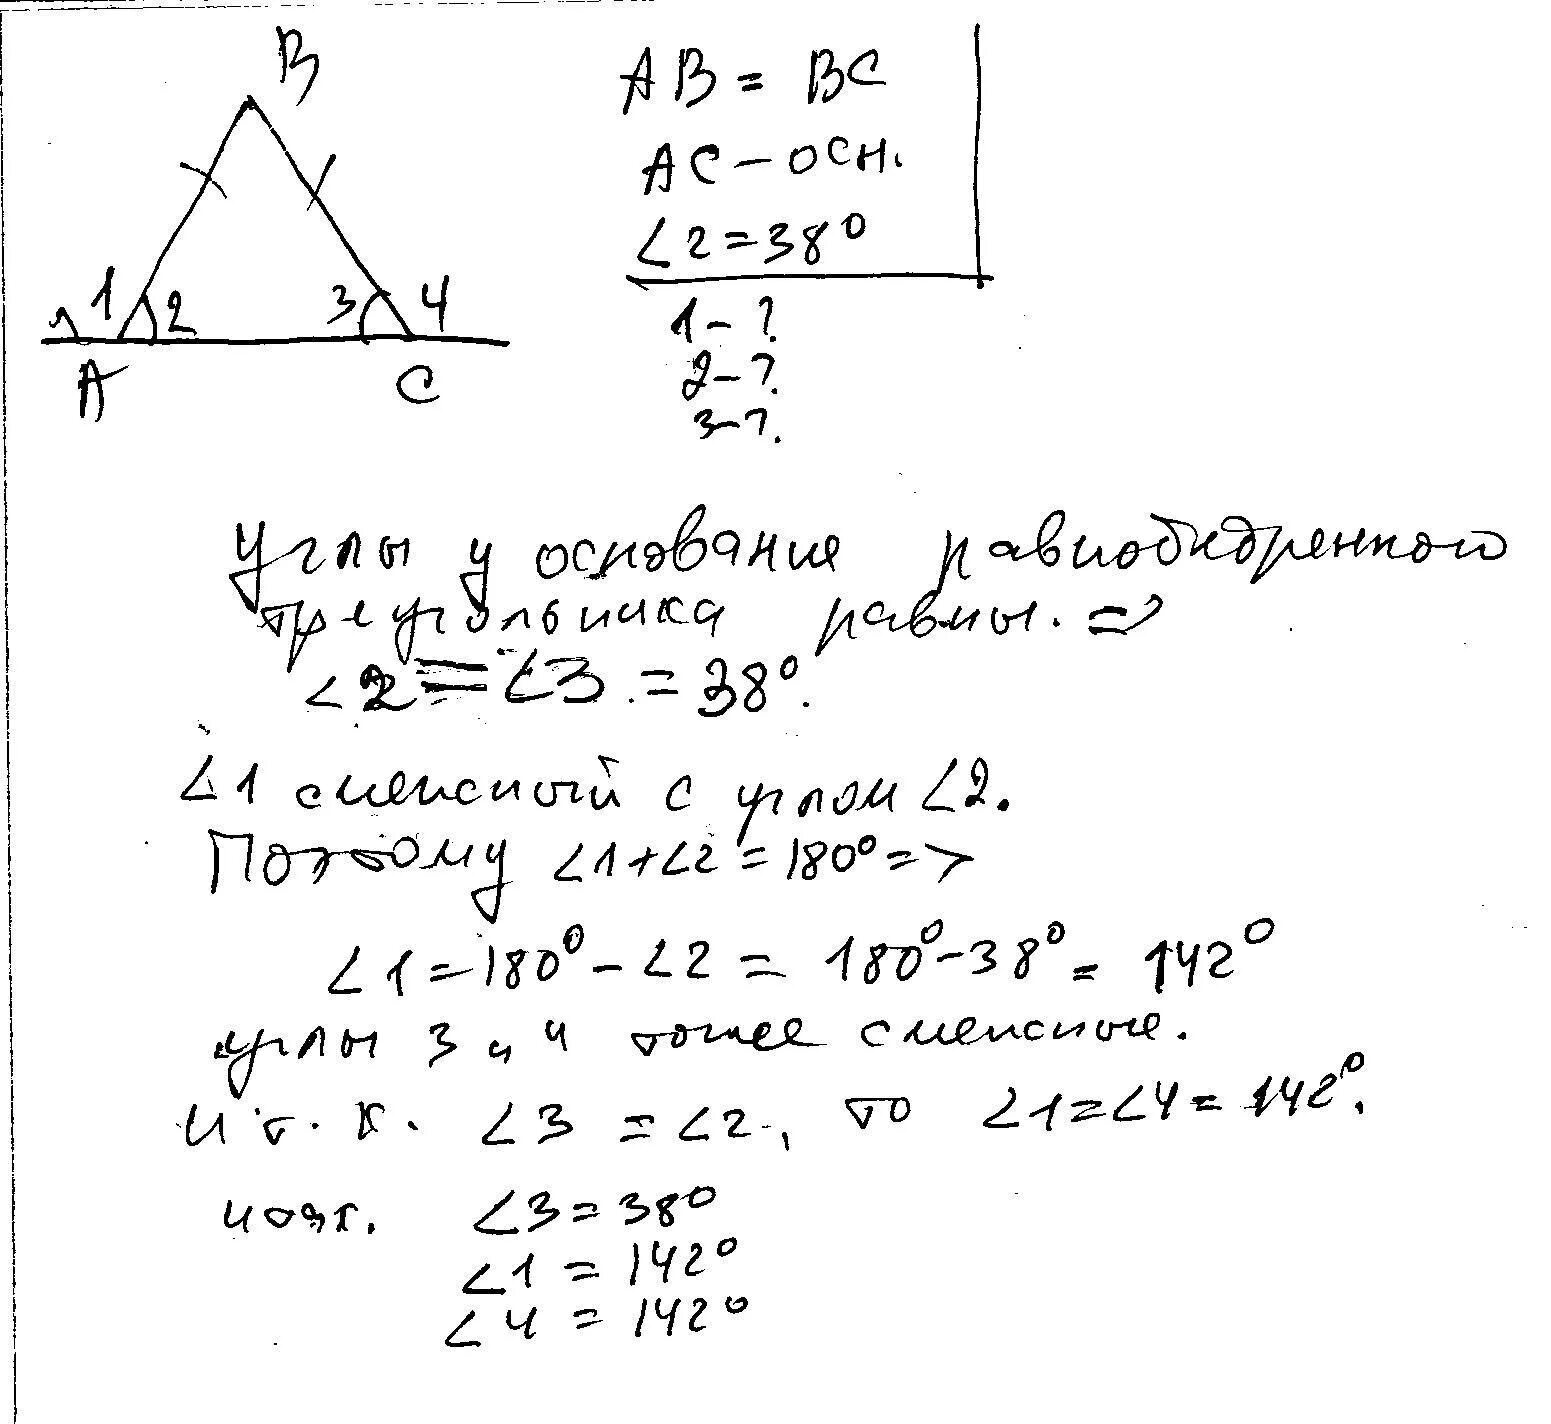 B
1 2 3 4
A C
AB = BC
AC – осн.
∠2=38°
1–?
2–?
3–?
углы у основание равнобедренного
треугольника равны. =>
∠2 = ∠3 = 38°.
∠1 смежный с углом ∠2.
Поэтому ∠1+∠2=180° =>
∠1=180°–∠2=180°–38°=142°
углы 3 и 4 тоже смежные.
И т. к. ∠3=∠2, то ∠1=∠4=142°.
∠3=38°
∠1=142°
∠4=142°